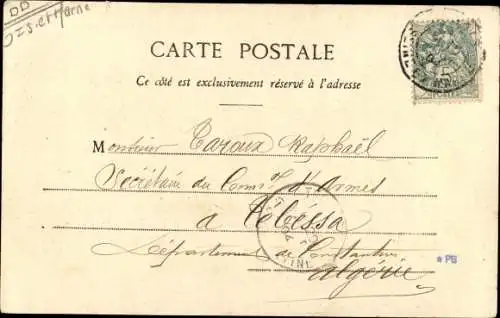 DD
S.et Marne
CARTE POSTALE
Ce côté est exclusivement réservé à l'adresse
Monsieur Caroux Raphaël
Secrétaire du Comm.t d'Armes
a Tébéssa
Département de Constantine
Algérie
* PB